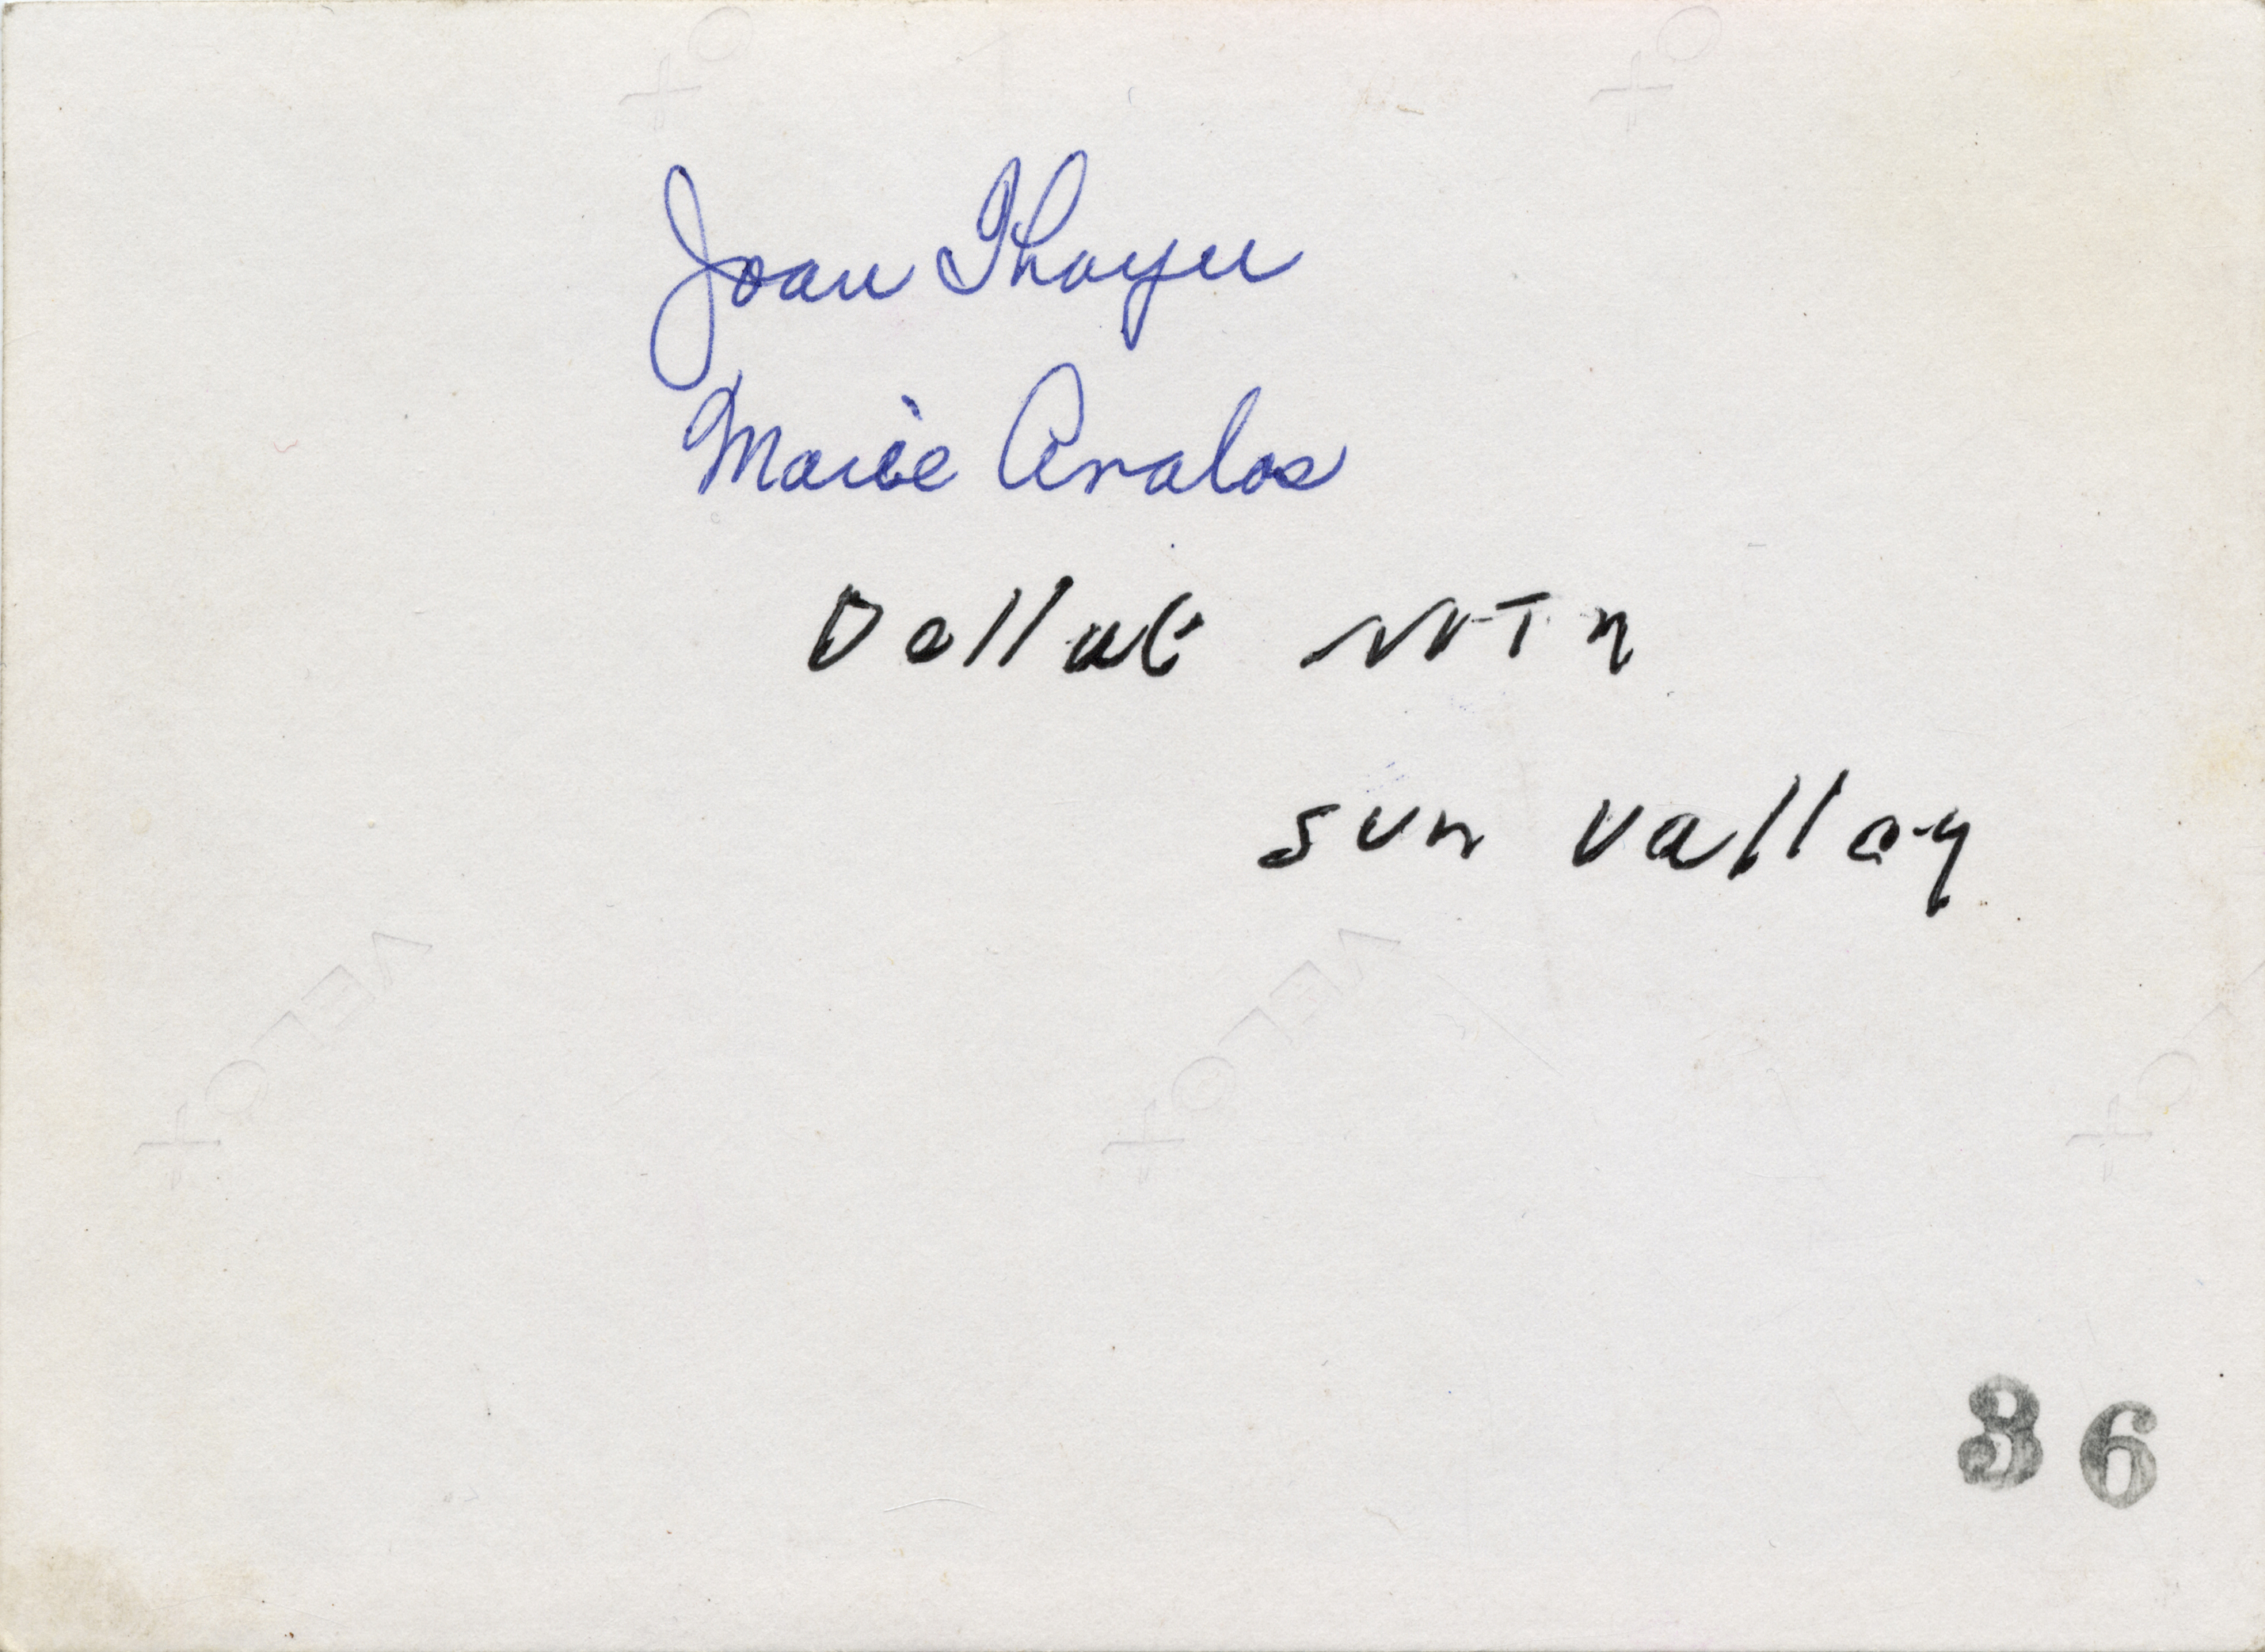 Joan Thayer
Marie Avalos
Dollar MTn
Sun Valley
VELOX
VELOX
36